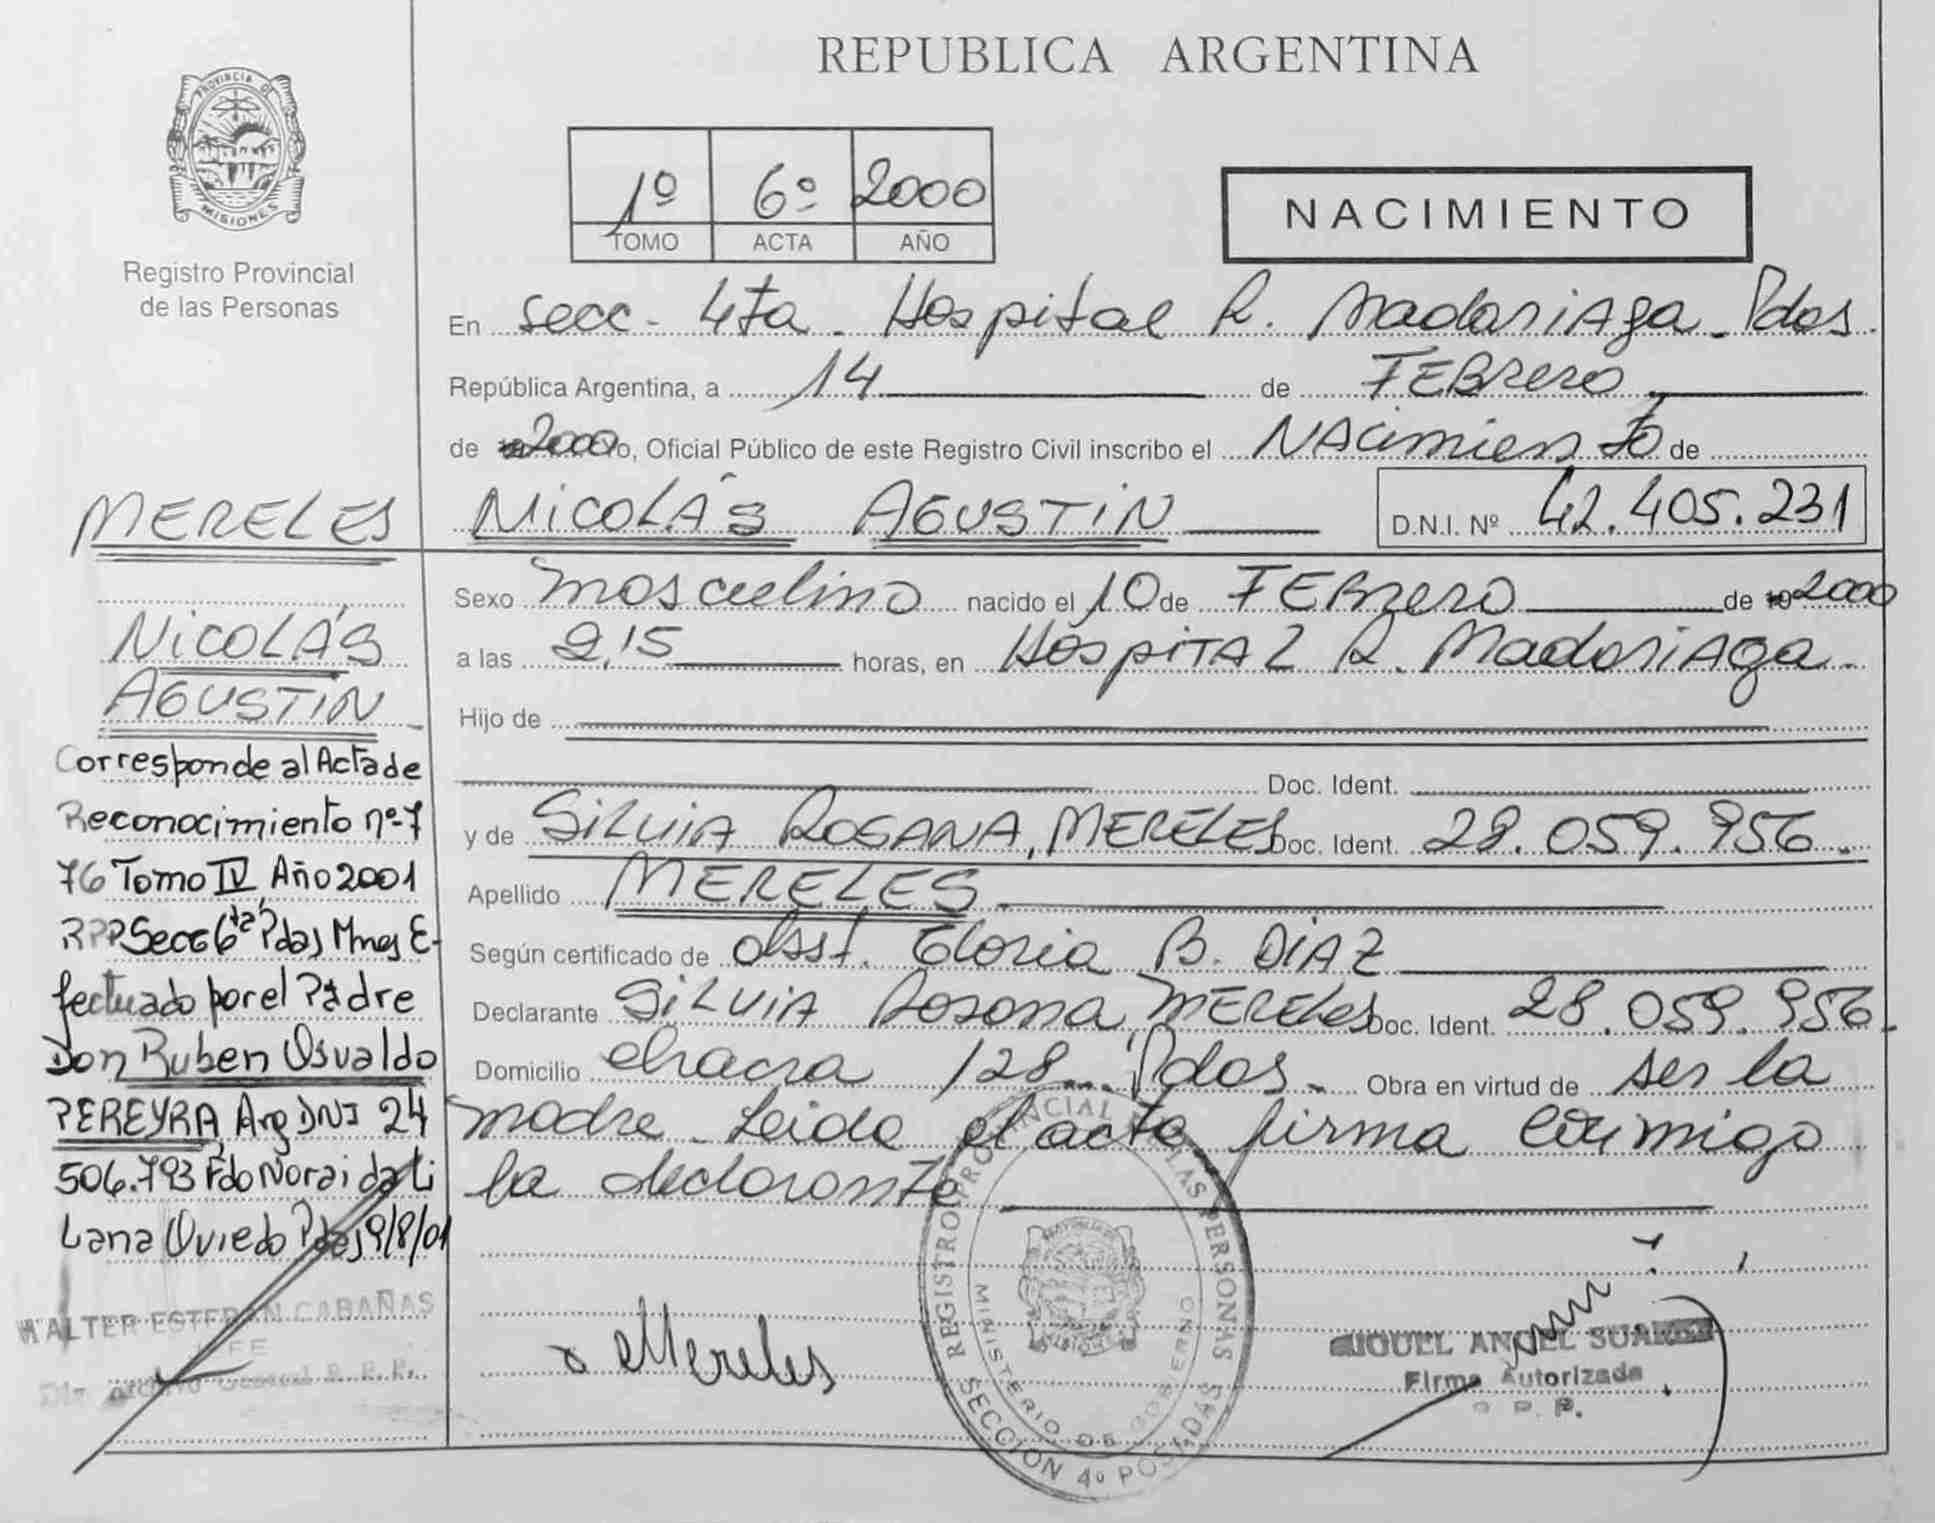 REPUBLICA ARGENTINA
PROVINCIA DE
MISIONES
Registro Provincial
de las Personas
1º 6º 2000
TOMO ACTA AÑO
NACIMIENTO
En secc. 4ta. Hospital R. Madariaga. Pdas.
República Argentina, a 14 de FEBrero
de 2000 Yo, Oficial Público de este Registro Civil inscribo el NAcimiento de
NICOLÁS AGUSTIN D.N.I. Nº 42.405.231
Sexo masculino nacido el 10 de FEBrero de 2000
a las 2,15 horas, en HospiTAL R. MadariAga.
Hijo de
Doc. Ident.
y de SiLViA ROSANA, MERELES Doc. Ident. 28.059.956.
Apellido MERELES
Según certificado de obst. Gloria B. DIAZ
Declarante SiLViA Rosana, MERELES Doc. Ident. 28.059.956.
Domicilio chacra 128. Pdas. Obra en virtud de ser la
madre. Leida el acta firma conmigo
la declarante
MERELES
NICOLÁS
AGUSTIN
Corresponde al Acta de
Reconocimiento nº-7
76 Tomo IV Año 2001
RPP Secc 6ta Pdas Mnes E-
fectuado por el Padre
Don Ruben Osvaldo
PEREYRA, Arg DNI 24
506.793 Fdo Noraida Li
Lana Oviedo Pdas 9/8/01
WALTER ESTEBAN CABAÑAS
JEFE
Dir. Archivo General R. P. P.
x Mereles
REGISTRO PROVINCIAL DE LAS PERSONAS
MINISTERIO DE GOBIERNO
SECCION 4º POSADAS
MIGUEL ANGEL SUAREZ
Firma Autorizada
R. P. P.